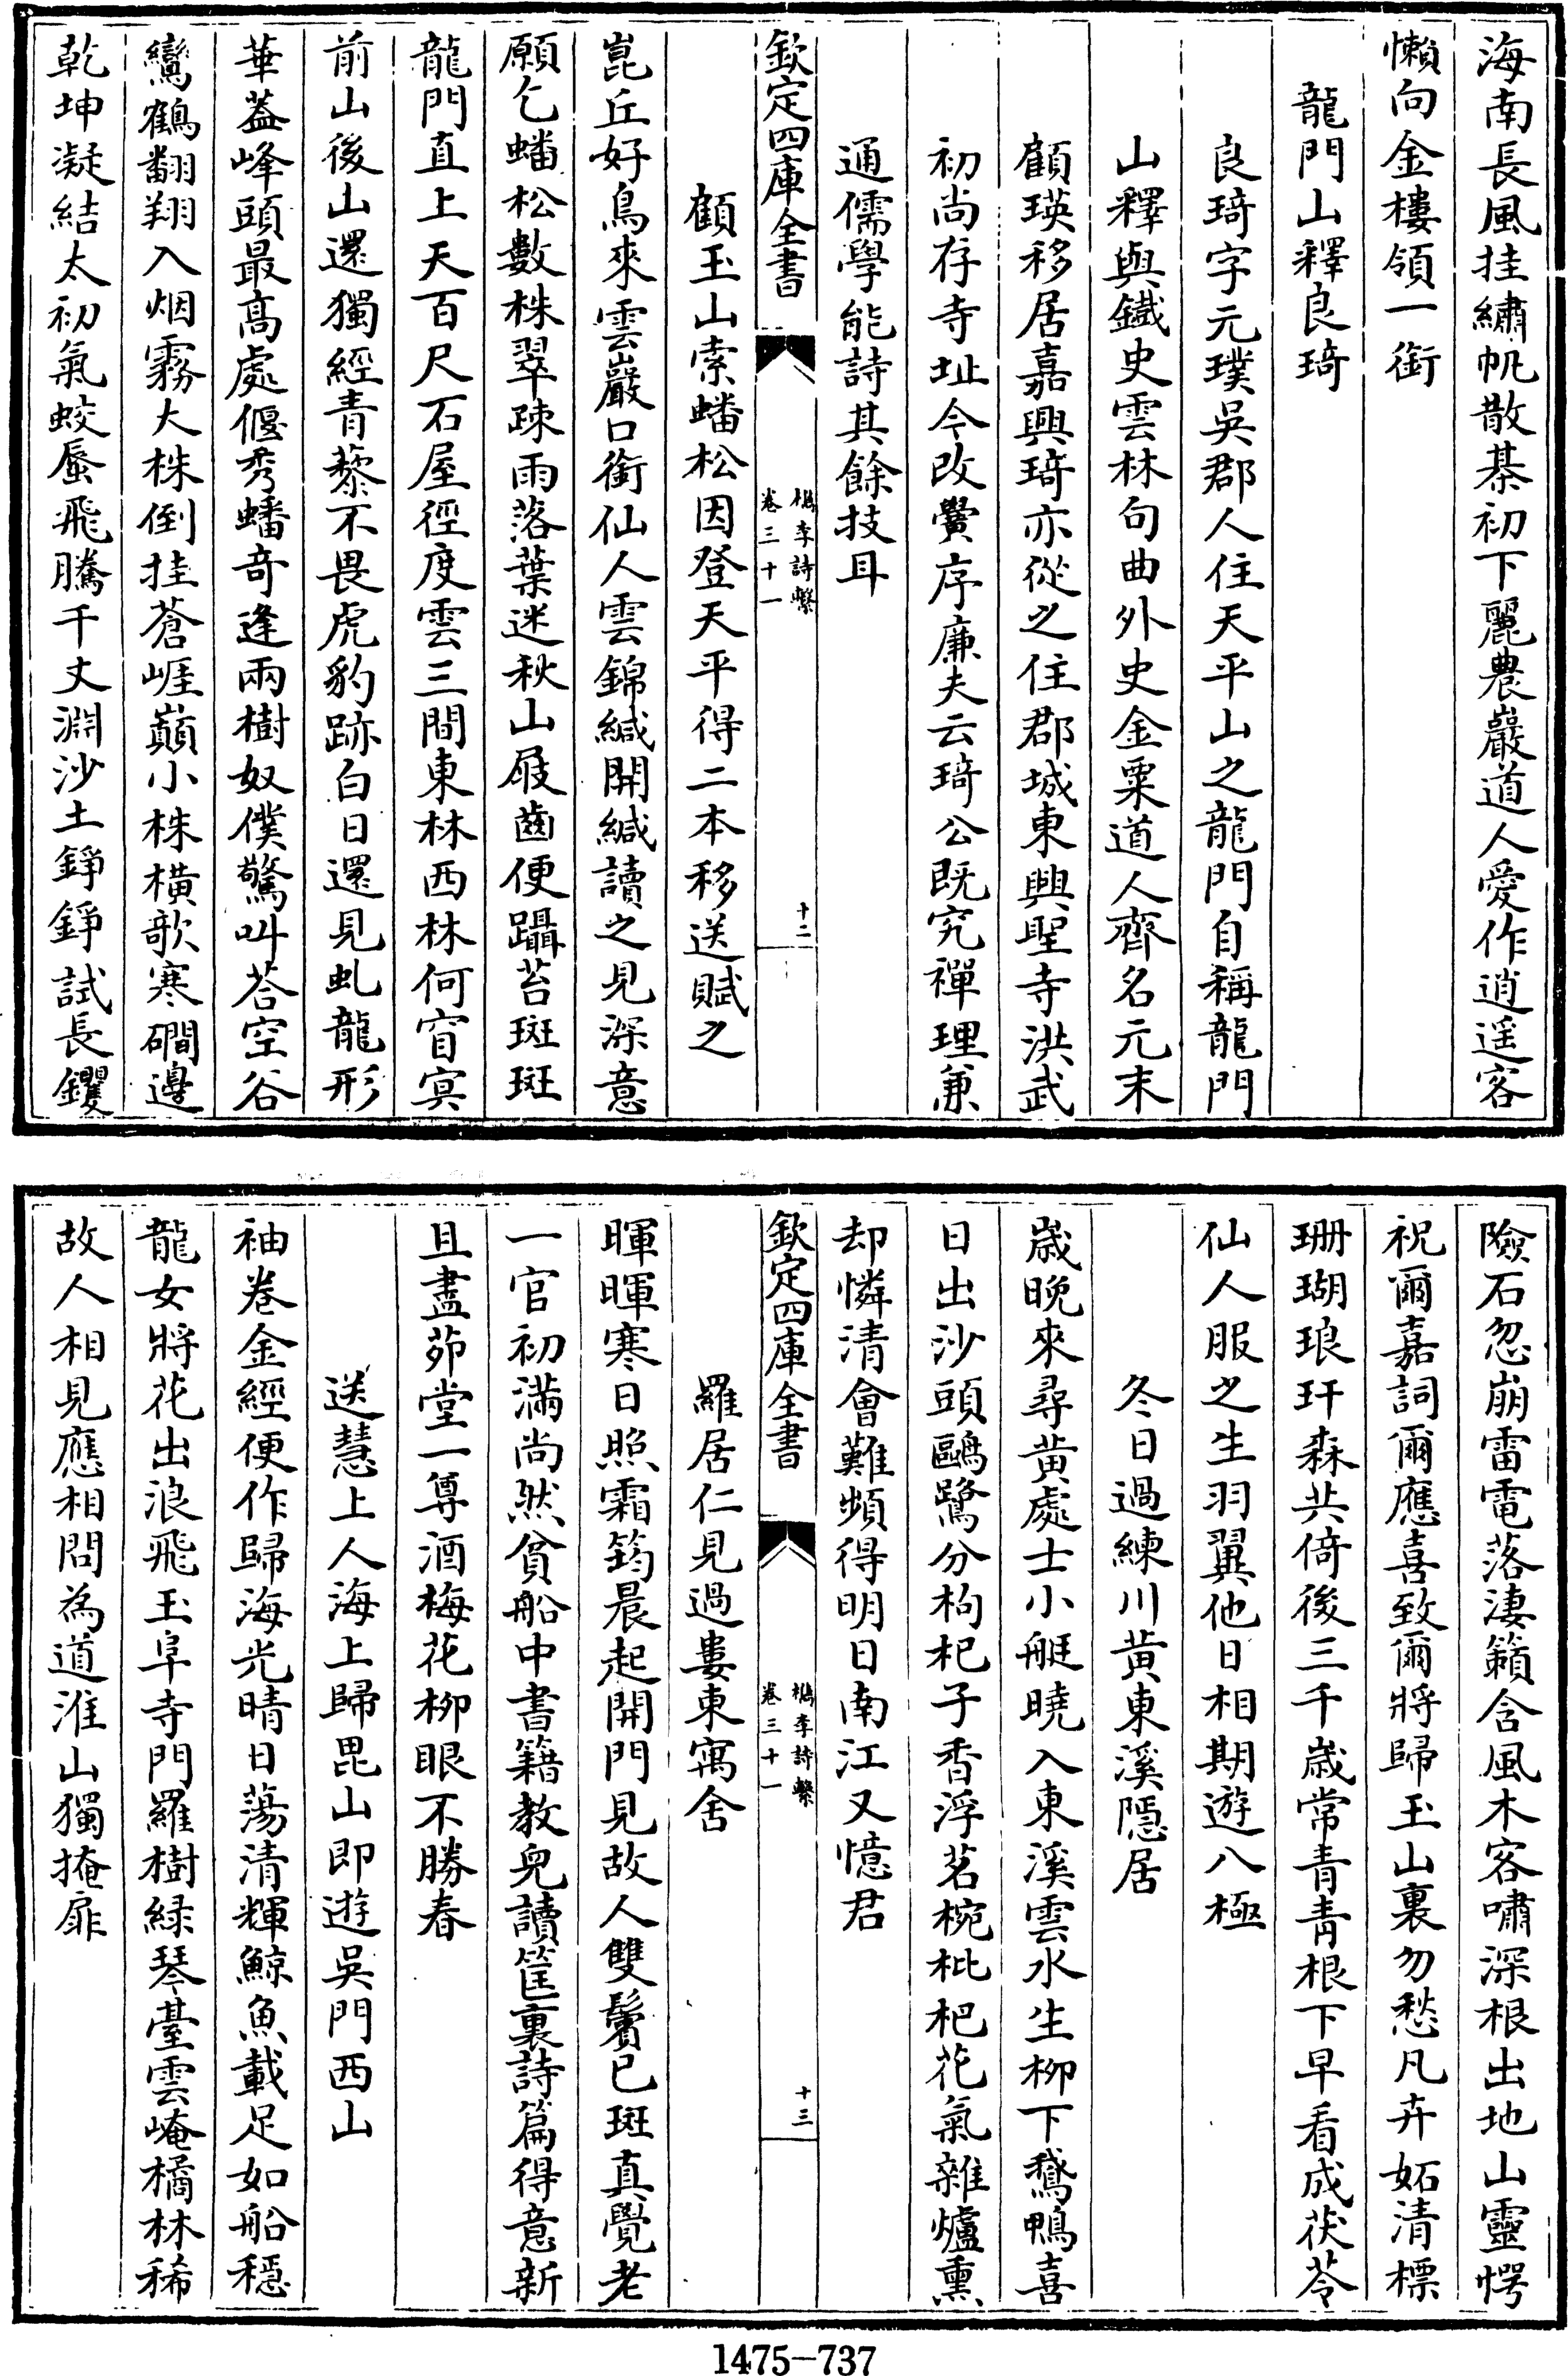 海南長風挂繡帆散棊初下麗農巖道人愛作逍遥客
懶向金樓領一銜
龍門山釋良琦
良琦字元璞吳郡人住天平山之龍門自稱龍門
山釋與鐵史雲林句曲外史金粟道人齊名元末
顧瑛移居嘉興琦亦從之住郡城東興聖寺洪武
初尚存寺址今改黌序廉夫云琦公既究禪理兼
通儒學能詩其餘技耳
欽定四庫全書
檇李詩繫
卷三十一
十二
顧玉山索蟠松因登天平得二本移送賦之
崑丘好鳥來雲巖口銜仙人雲錦緘開緘讀之見深意
願乞蟠松數株翠疎雨落葉迷秋山屐齒便躡苔斑斑
龍門直上天百尺石屋徑度雲三間東林西林何窅冥
前山後山還獨經青藜不畏虎豹跡白日還見虬龍形
華葢峰頭最高處偃秀蟠竒逢兩樹奴僕驚叫荅空谷
鸞鶴翻翔入烟霧大株倒挂蒼崕巔小株横歌寒磵邊
乾坤凝結太初氣蛟蜃飛騰千丈淵沙土錚錚試長钁
險石忽崩雷電落淒籟含風木客嘯深根出地山靈愕
祝爾嘉詞爾應喜致爾將歸玉山裏勿愁凡卉妬清標
珊瑚琅玕森共倚後三千歳常青青根下早看成茯苓
仙人服之生羽翼他日相期遊八極
冬日過練川黄東溪隱居
歳晚來尋黄處士小艇曉入東溪雲水生柳下鵞鴨喜
日出沙頭鷗鷺分枸杞子香浮茗椀枇杷花氣雜爐熏
却憐清會難頻得明日南江又憶君
欽定四庫全書
檇李詩繫
卷三十一
十三
羅居仁見過婁東寓舍
暉暉寒日照霜筠晨起開門見故人雙鬢已斑真覺老
一官初滿尚然貧船中書籍教兒讀筐裏詩篇得意新
且盡茆堂一尊酒梅花柳眼不勝春
送慧上人海上歸毘山即遊吳門西山
袖卷金經便作歸海光晴日蕩清輝鯨魚載足如船穩
龍女將花出浪飛玉阜寺門羅樹緑琴臺雲崦橘林稀
故人相見應相問為道淮山獨掩扉
1475—737